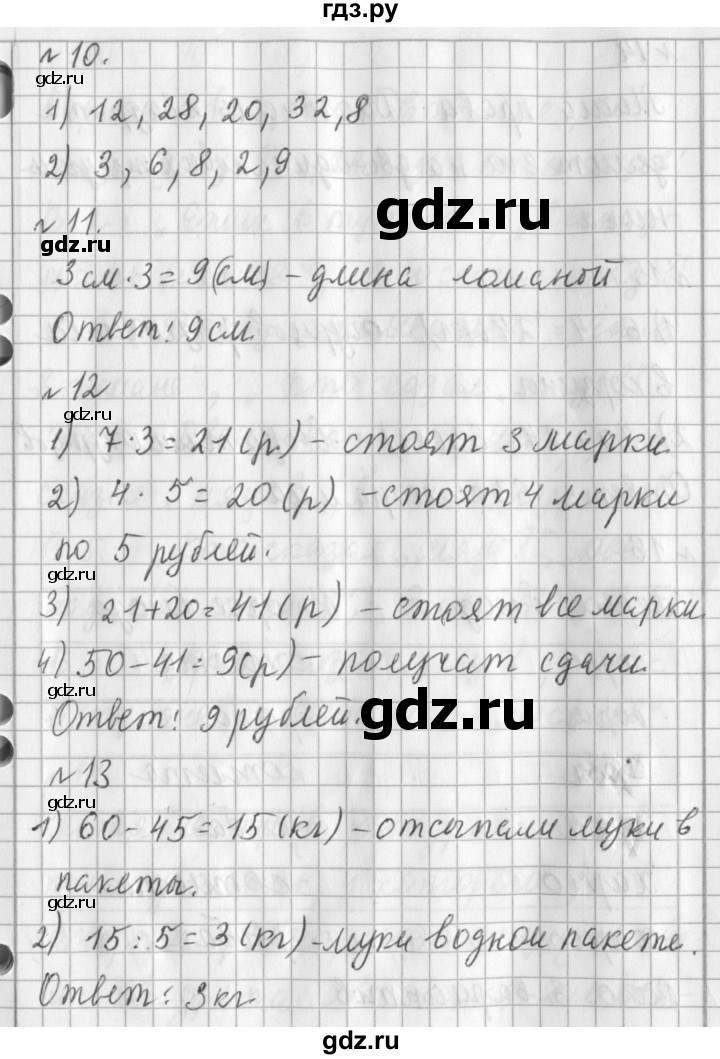 гдз.ру
№10.
1) 12, 28, 20, 32, 8
2) 3, 6, 8, 2, 9
gdz.ru
№11.
gdz.ru
3см·3=9(см) – длина ломаной
Ответ: 9см.
№12
gdz.ru
1) 7·3=21(р.) – стоят 3 марки.
2) 4·5=20(р) – стоят 4 марки
gdz.ru
по 5 рублей.
3) 21+20=41(р) – стоят все марки.
gdz.ru
4) 50–41=9(р) – получат сдачи.
gdz.ru
Ответ: 9 рублей.
№13
gdz.ru
1) 60–45=15(кг) – отсыпали муки в
пакеты.
gdz.ru
2) 15:5=3(кг) – муки в одном пакете.
Ответ: 3кг.
gdz.ru
gdz.ru